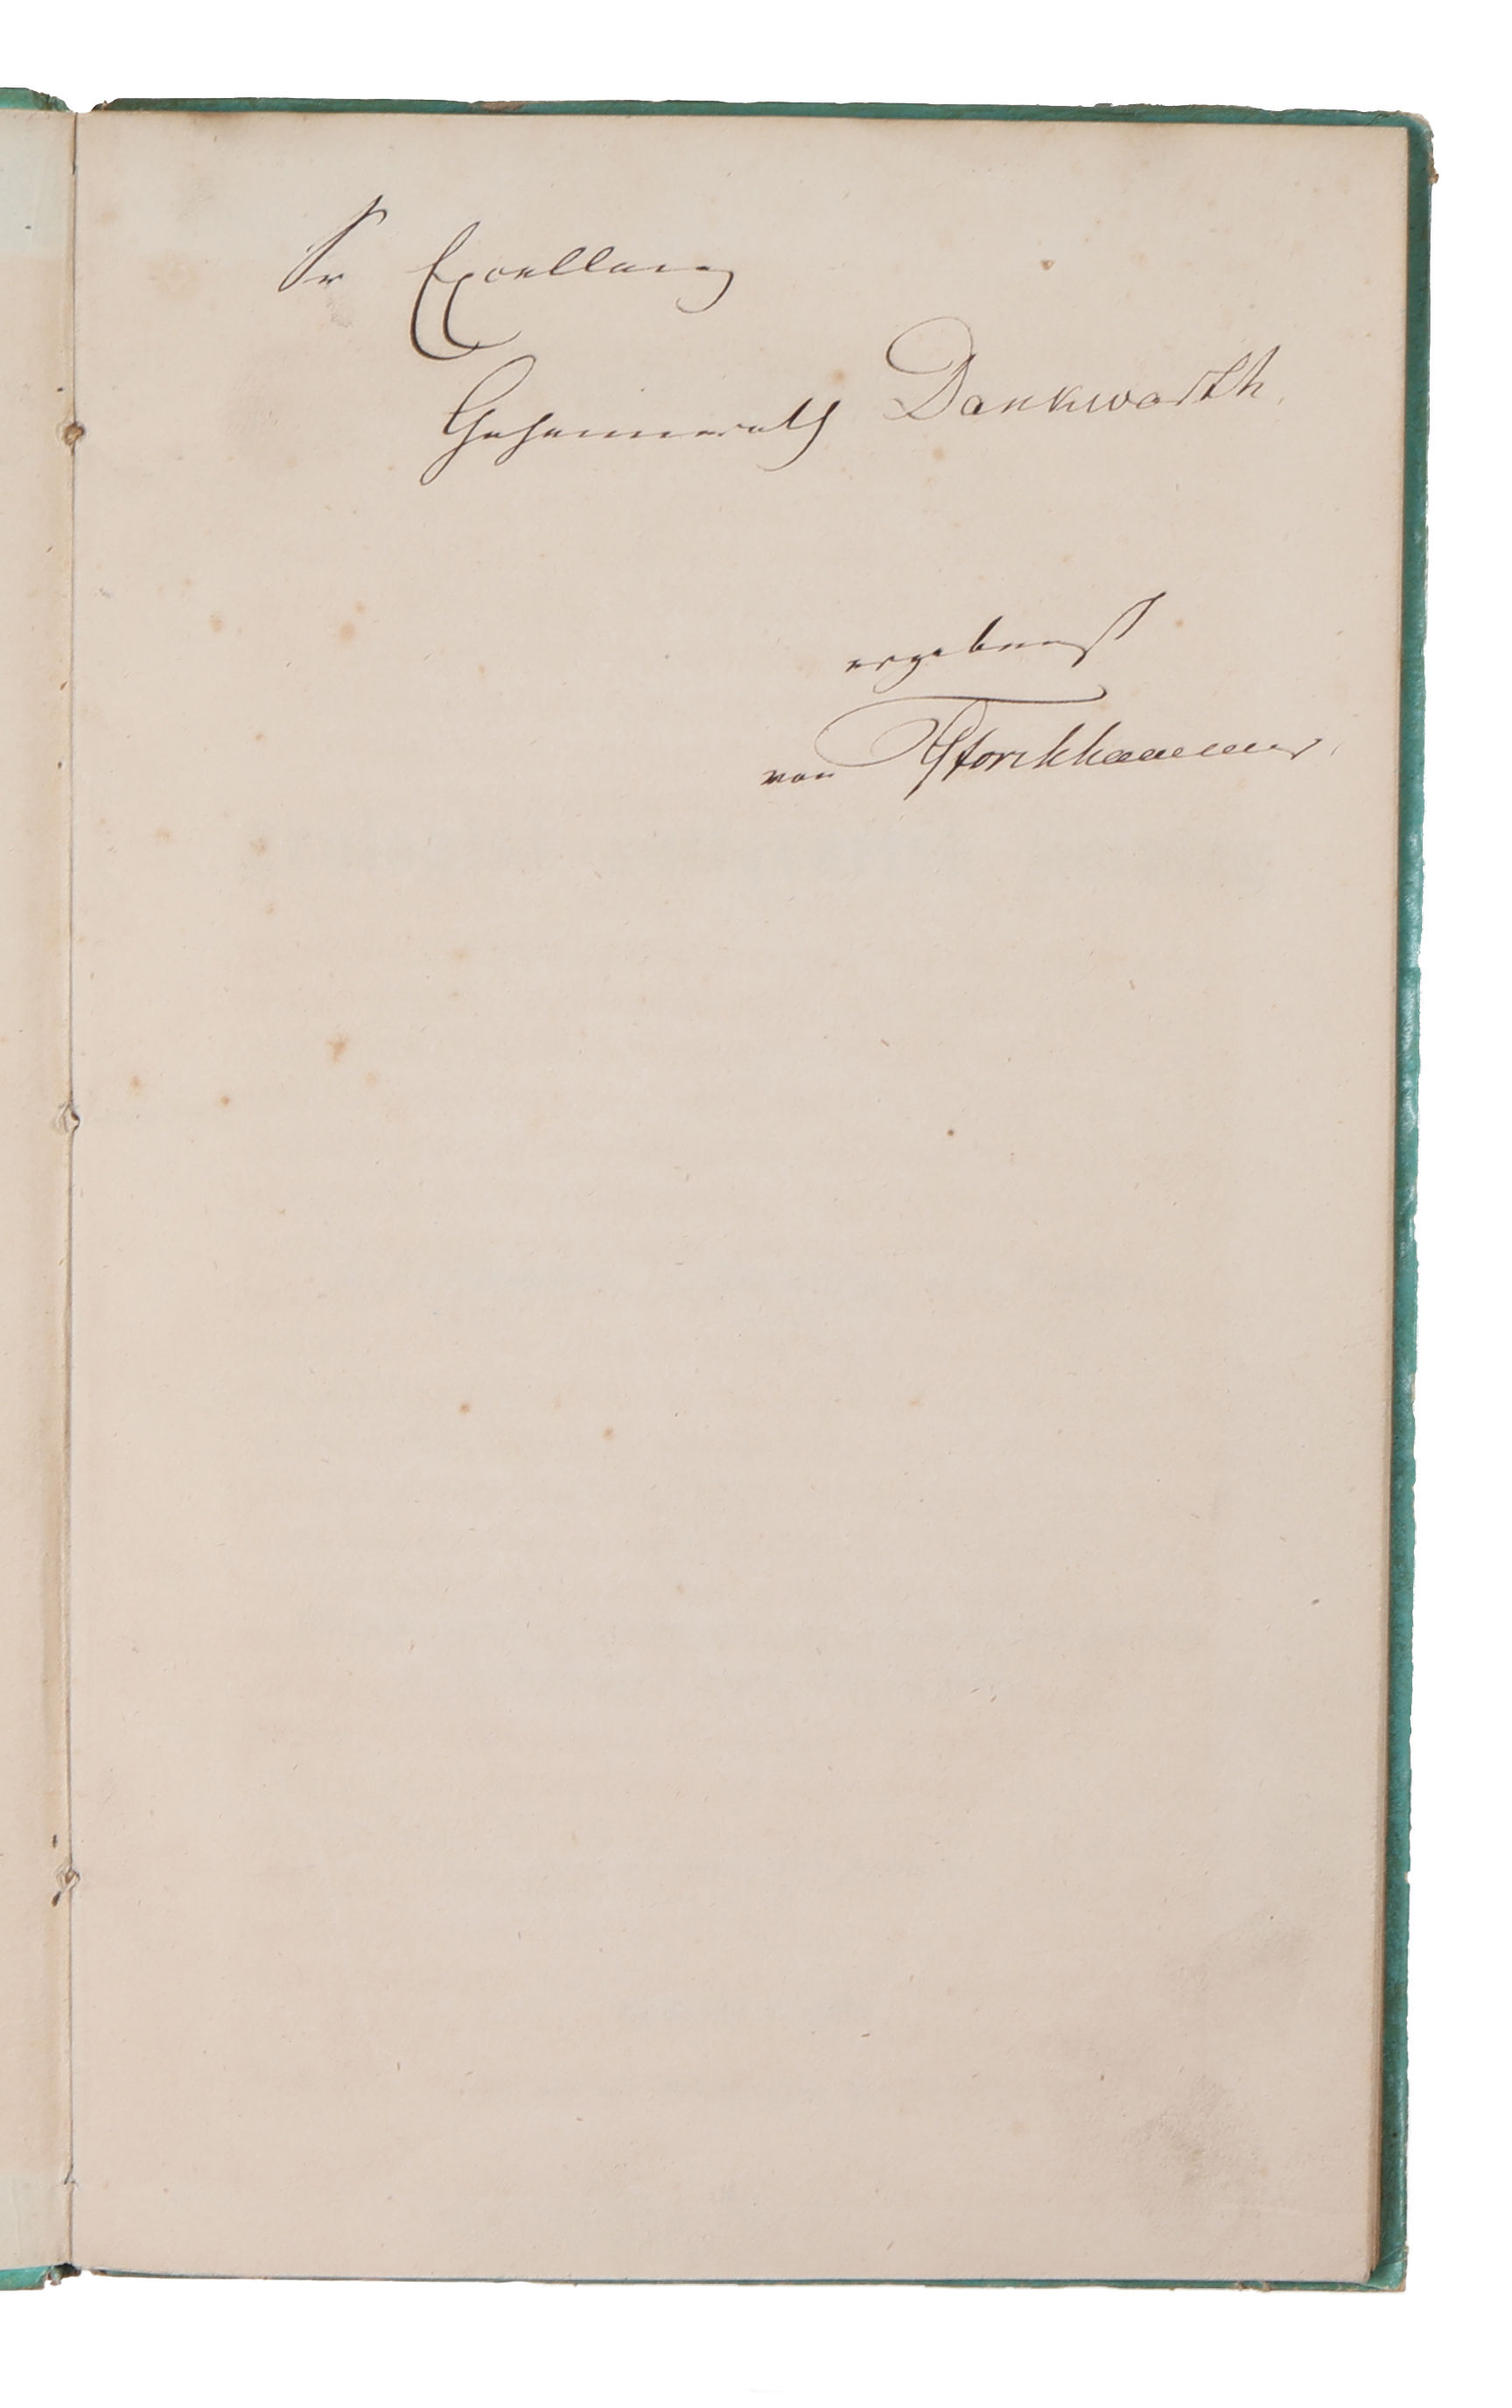 Sr Excellenz
Geheimerath Dankwarth.
ergebenst
von Storkhammer.